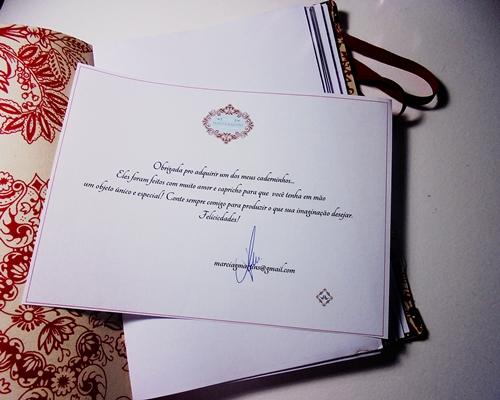 Obrigada pro adquirir um dos meus caderninhos...
Eles foram feitos com muito amor e capricho para que você tenha em mão
um objeto único e especial! Conte sempre comigo para produzir o que sua imaginação desejar.
Felicidades!